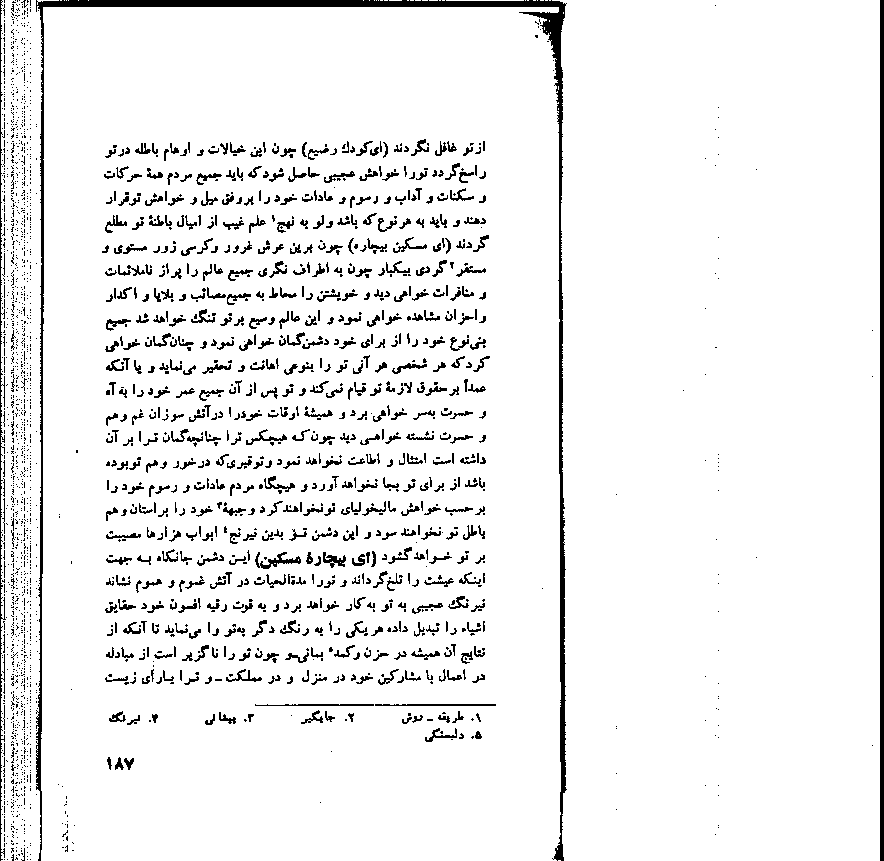 ازتو غافل نگردند (ای‌کودك رضیع) چون این خیالات و اوهام باطله درتو
راسخ‌گردد تورا خواهش عجیبی حاصل شودکه باید جمیع مردم همهٔ حرکات
و سکنات و آداب و رسوم و عادات خود را بروفق میل و خواهش توقرار
دهند و باید به هرنوع‌که باشد ولو به نهج۱ علم غیب از امیال باطنهٔ تو مطلع
گردند (ای مسکین بیچاره) چون برین عرش غرور وکرسی زور مستوی و
مستقر۲ گردی بیکبار چون به اطراف نگری جمیع عالم را پراز ناملائمات
و منافرات خواهی دید و خویشتن را محاط به جمیع‌مصائب و بلایا و اکدار
واحزان مشاهده خواهی نمود و این عالم وسیع برتو تنگ خواهد شد جمیع
بنی‌نوع خود را از برای خود دشمن‌گمان خواهی نمود و چنان‌گمان خواهی
کردکه هر شخصی هر آنی تو را بنوعی اهانت و تحقیر می‌نماید و یا آنکه
عمداً برحقوق لازمهٔ تو قیام نمی‌کند و تو پس از آن جمیع عمر خود را به آه
و حسرت به‌سر خواهی برد و همیشهٔ اوقات خودرا درآتش سوزان غم وهم
و حسرت نشسته خواهـی دید چون‌کـه هیچکس ترا چنانچه‌گمان تـرا بر آن
داشته است امتثال و اطاعت نخواهد نمود وتوقیری‌که درخور وهم توبوده
باشد از برای تو بجا نخواهد آورد و هیچگاه مردم عادات و رسوم خود را
برحسب خواهش مالیخولیای تونخواهندکرد وجبههٔ۳ خود را براستان وهم
باطل تو نخواهند سود و این دشمن تـــز بدین نیرنج۴ ابواب هزارها مصیبت
بر تو خـواهدگشود (ای بیچارهٔ مسکین) ایـن دشمن جانکاه بـه جهت
اینکه عیشت را تلخ‌گرداند و تورا مدةالحیات در آتش غموم و هموم نشاند
نیرنگ عجیبی به تو به‌کار خواهد برد و به قوت رقیه افسون خود حقایق
اشیاء را تبدیل داده هریکی را به رنگ دگر به‌تو وا می‌نماید تا آنکه از
نتایج آن همیشه در حزن وکمد۵ بمانی‌ـو چون تو را ناگزیر است از مبادله
در اعمال با مشارکین خود در منزل و در مملکت ـ و تـرا یـارأی زیست
۱. طریقه ـ روش ۲. جایگیر ۳. پیشانی ۴. نیرنگ
۵. دلبستگی
۱۸۷